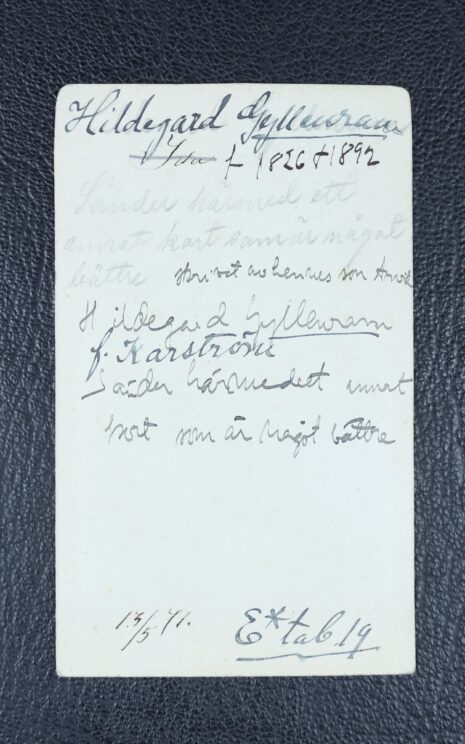 Hildegard Gyllenram
Ida f 1826 † 1892
Sänder härmed ett
annat kort som är något
bättre skrivet av hennes son Arvid
Hildegard Gyllenram
f. Karström
Sänder härmed ett annat
kort som är något bättre
13/5 71. E* tab 19